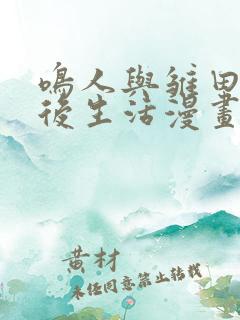 鳴人與雛田
後生活漫畫
黃材
未任同意禁止转载